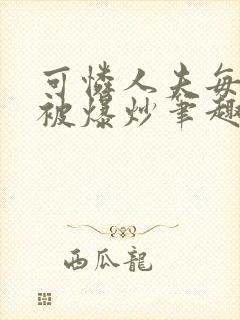 可憐人夫每
被爆炒筆趣
西瓜龍